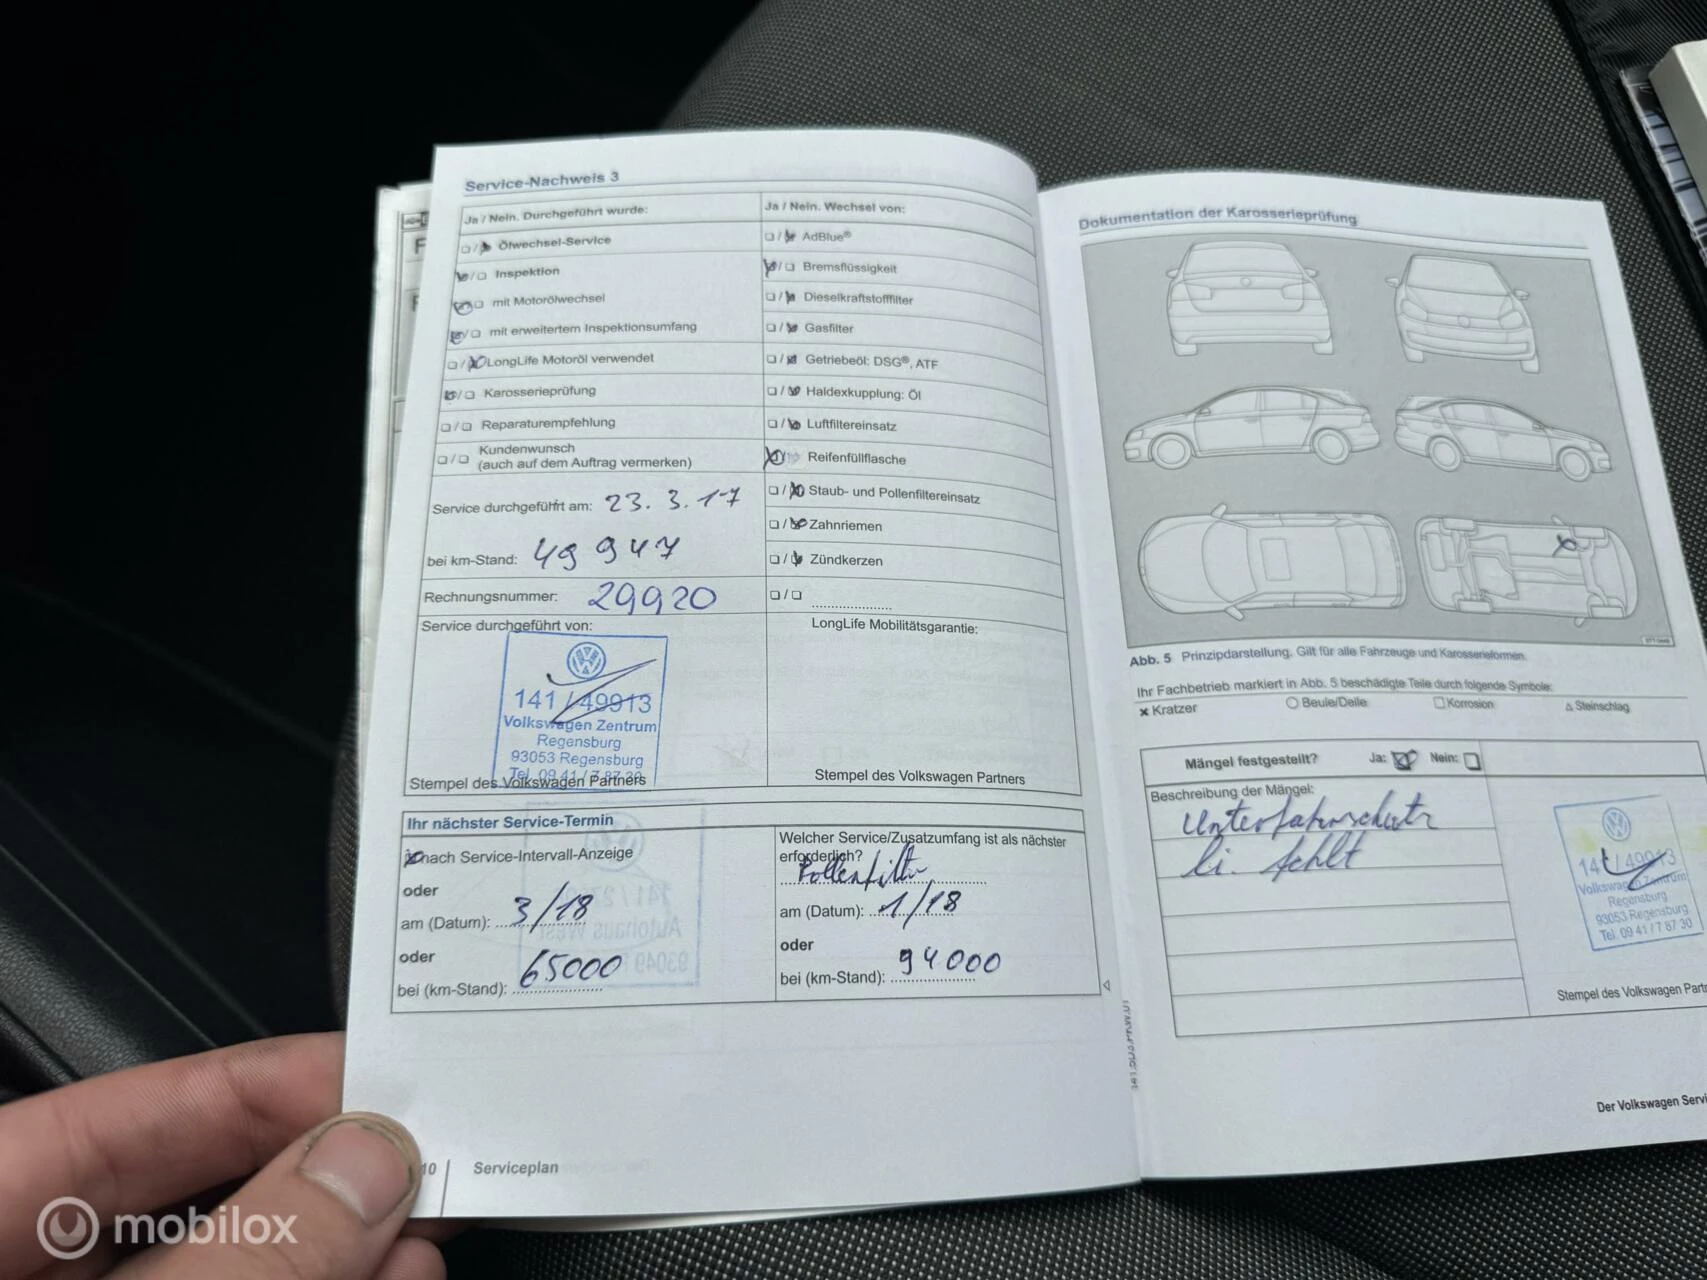 Service-Nachweis 3
Ja / Nein. Durchgeführt wurde:
Ölwechsel-Service
Inspektion
mit Motorölwechsel
mit erweitertem Inspektionsumfang
LongLife Motoröl verwendet
Karosserieprüfung
Reparaturempfehlung
Kundenwunsch
(auch auf dem Auftrag vermerken)
Service durchgeführt am: 23. 3. 17
bei km-Stand: 49 947
Rechnungsnummer: 29920
Service durchgeführt von:
141 / 49913
Volkswagen Zentrum
Regensburg
93053 Regensburg
Tel. 09 41 / 7 87 30
Stempel des Volkswagen Partners
Ja / Nein. Wechsel von:
AdBlue®
Bremsflüssigkeit
Dieselkraftstofffilter
Gasfilter
Getriebeöl: DSG®, ATF
Haldexkupplung: Öl
Luftfiltereinsatz
Reifenfüllflasche
Staub- und Pollenfiltereinsatz
Zahnriemen
Zündkerzen
LongLife Mobilitätsgarantie:
Stempel des Volkswagen Partners
Ihr nächster Service-Termin
nach Service-Intervall-Anzeige
oder
am (Datum): 3/18
oder
bei (km-Stand): 65000
Welcher Service/Zusatzumfang ist als nächster
erforderlich?
Pollenfilter
am (Datum): 1/18
oder
bei (km-Stand): 94000
10
Serviceplan
Dokumentation der Karosserieprüfung
Abb. 5 Prinzipdarstellung. Gilt für alle Fahrzeuge und Karosserieformen.
Ihr Fachbetrieb markiert in Abb. 5 beschädigte Teile durch folgende Symbole:
× Kratzer
Beule/Delle
Korrosion
Steinschlag
Mängel festgestellt? Ja: Nein:
Beschreibung der Mängel:
Unterfahrschutz
li. fehlt
141 / 49913
Volkswagen Zentrum
Regensburg
93053 Regensburg
Tel. 09 41 / 7 87 30
Stempel des Volkswagen
Der Volkswagen
mobilox